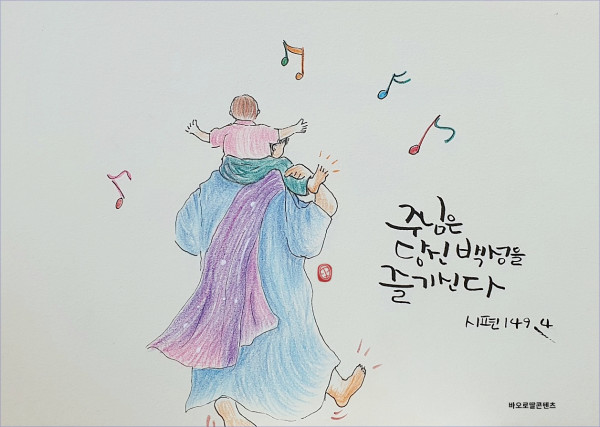 주님은
당신 백성을
즐기신다
시편 149,4
바오로딸콘텐츠